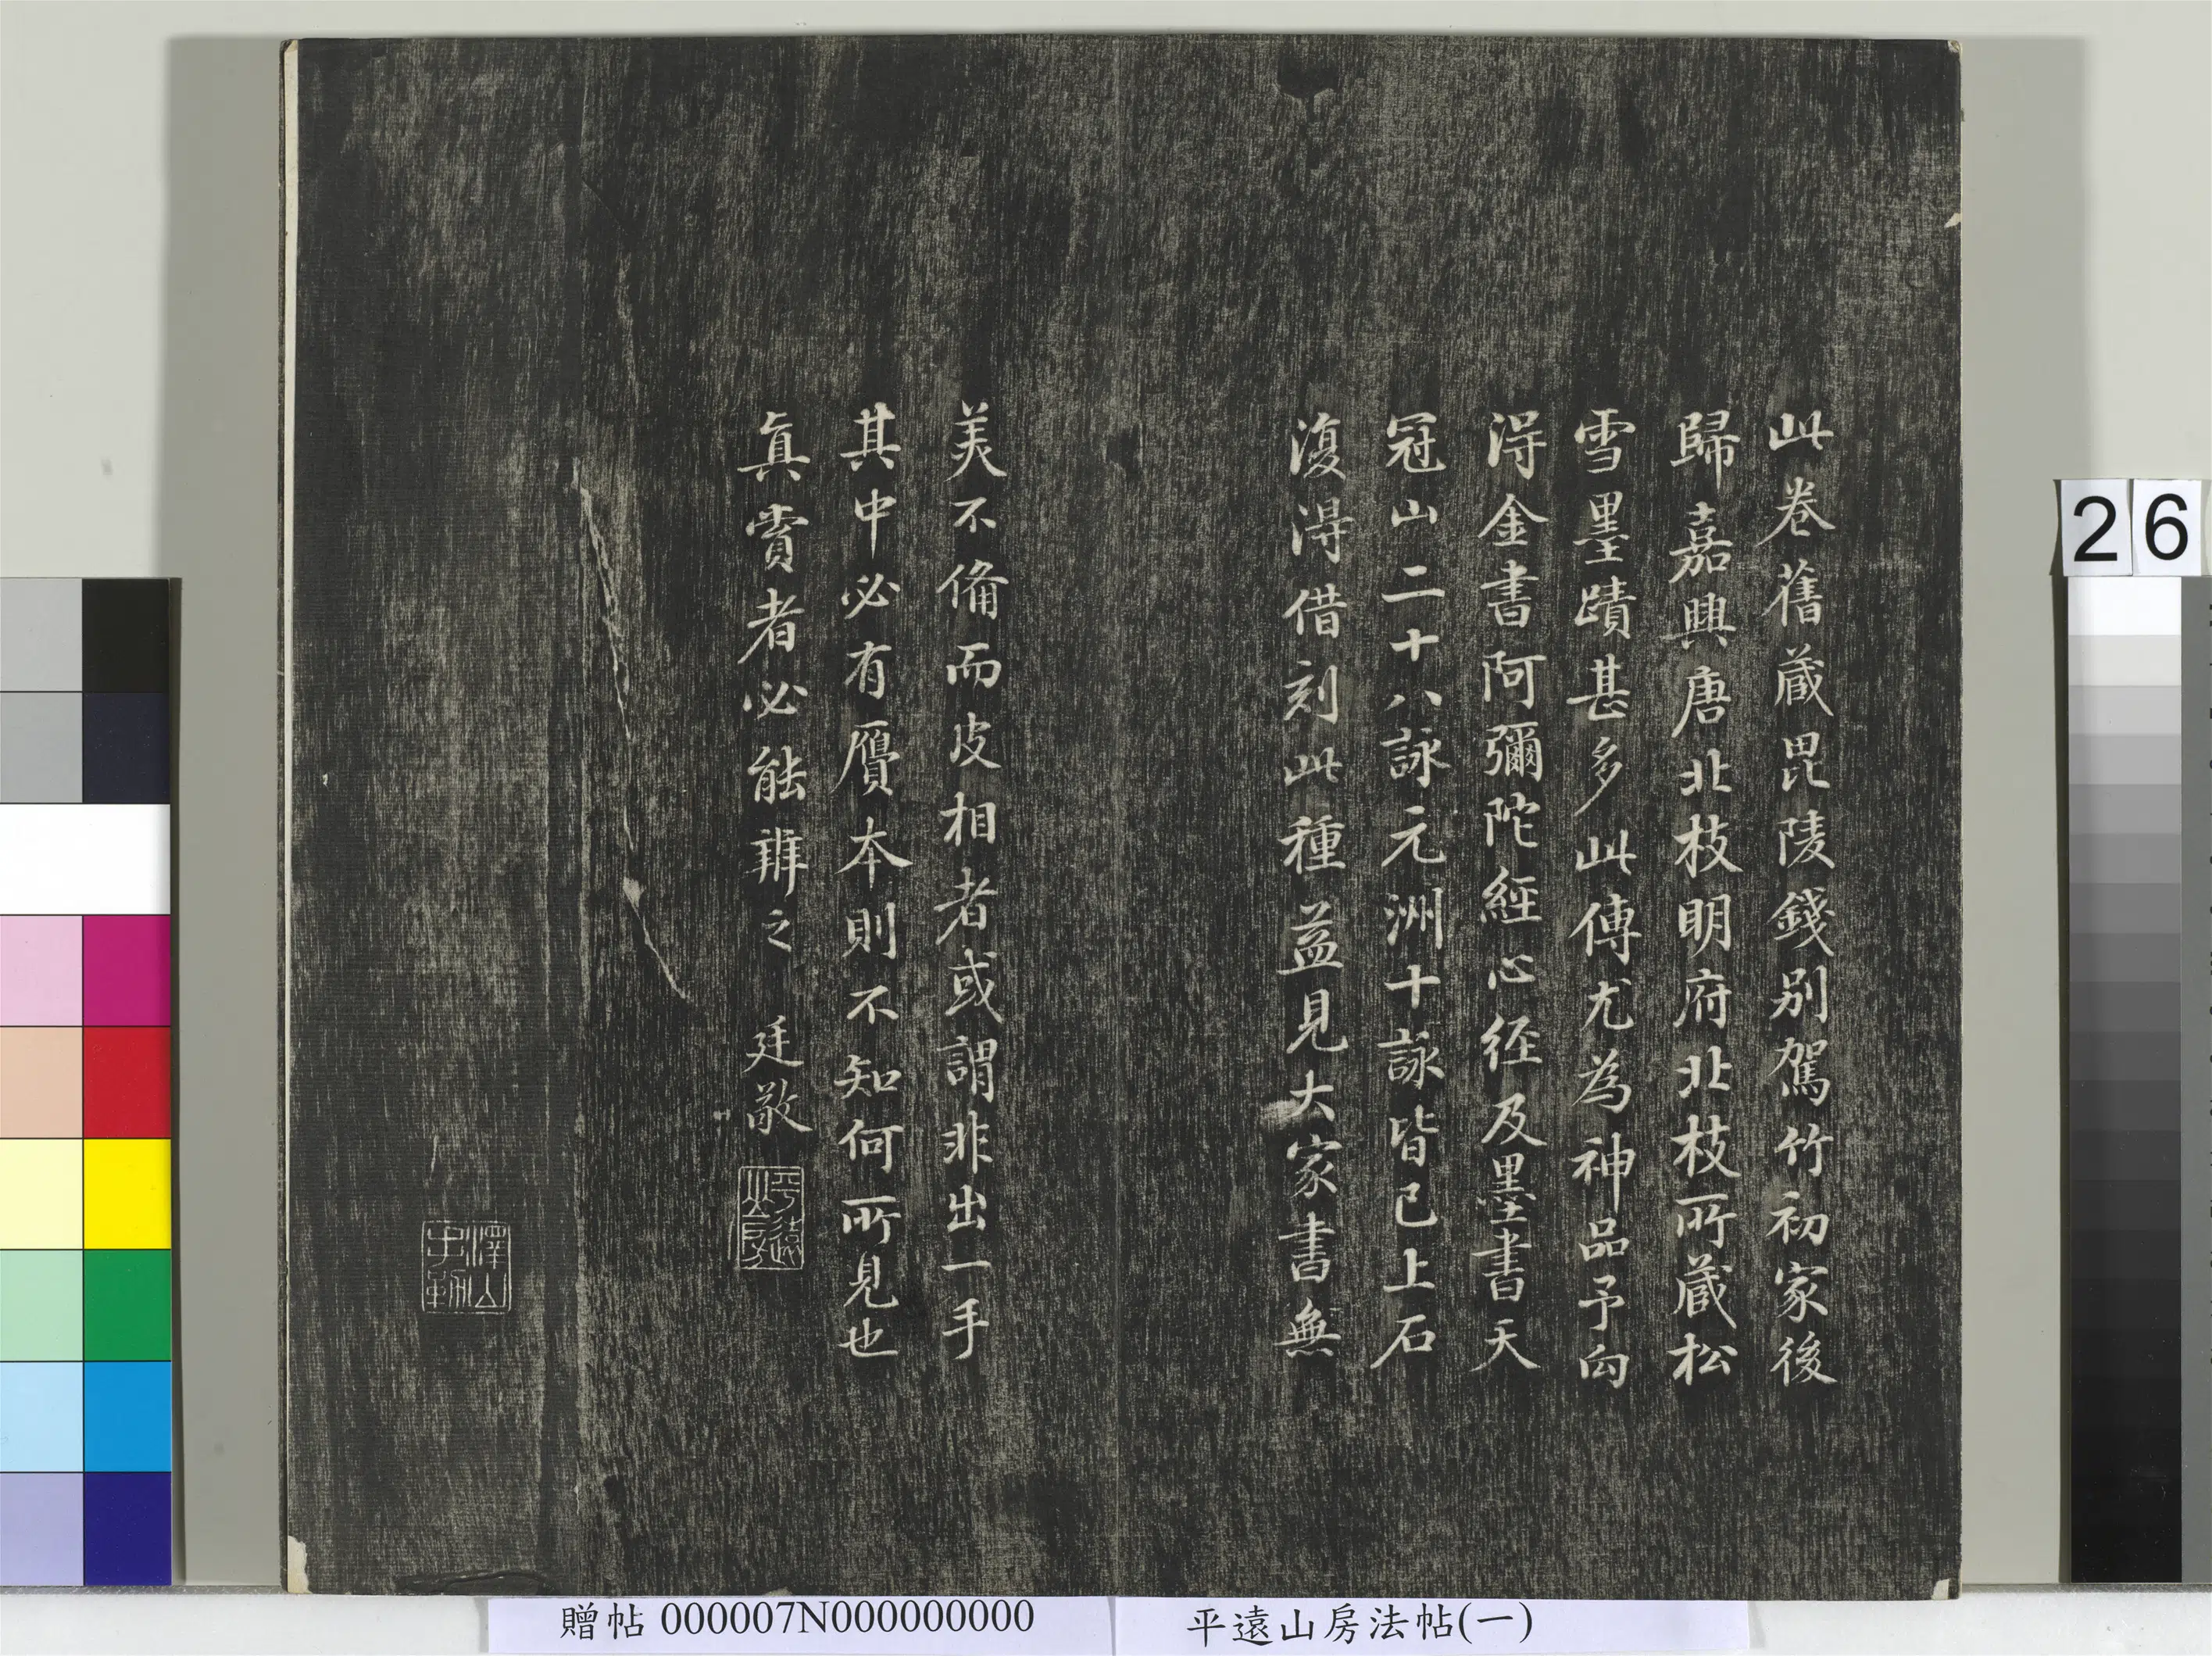 此卷舊藏毘陵錢別駕竹初家後
歸嘉興唐北枝明府北枝所藏松
雪墨蹟甚多此傳尤為神品予向
淂金書阿彌陀經心経及墨書天
冠山二十八詠元洲十詠皆已上石
復淂借刻此種益見大家書無
美不脩而皮相者或謂非出一手
其中必有贋本則不知何所見也
真賞者必能辨之 廷敬
平遠山房
澤山手勒
26
贈帖 000007N000000000
平遠山房法帖(一)